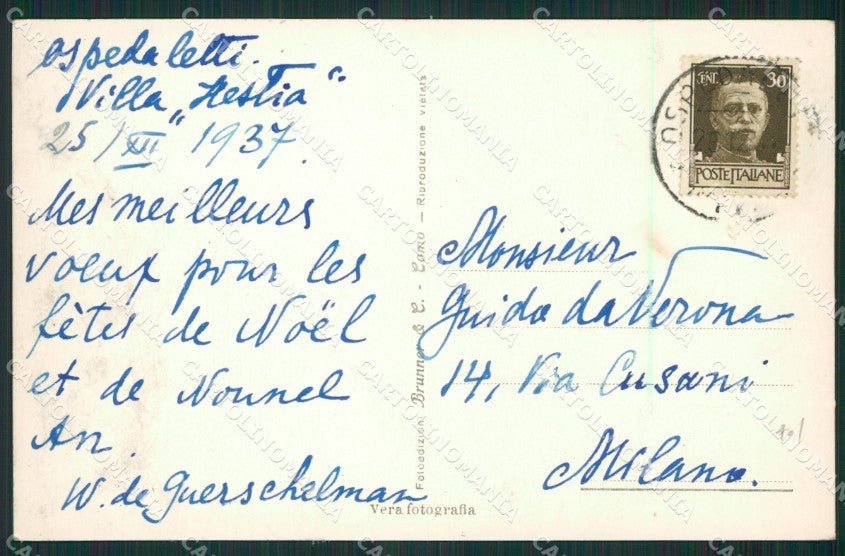 Ospedaletti.
Villa „Hestia“
25/XII 1937
Mes meilleurs
voeux pour les
fêtes de Noël
et de Nouvel
An.
W. de Guerschelman
Fotoedizioni Brunner & C. - Como - Riproduzione vietata
Vera fotografia
CENT. 30
POSTE ITALIANE
Monsieur
Guido da Verona
14, Via Cusani
Milano.
CARTOLINOMANIA